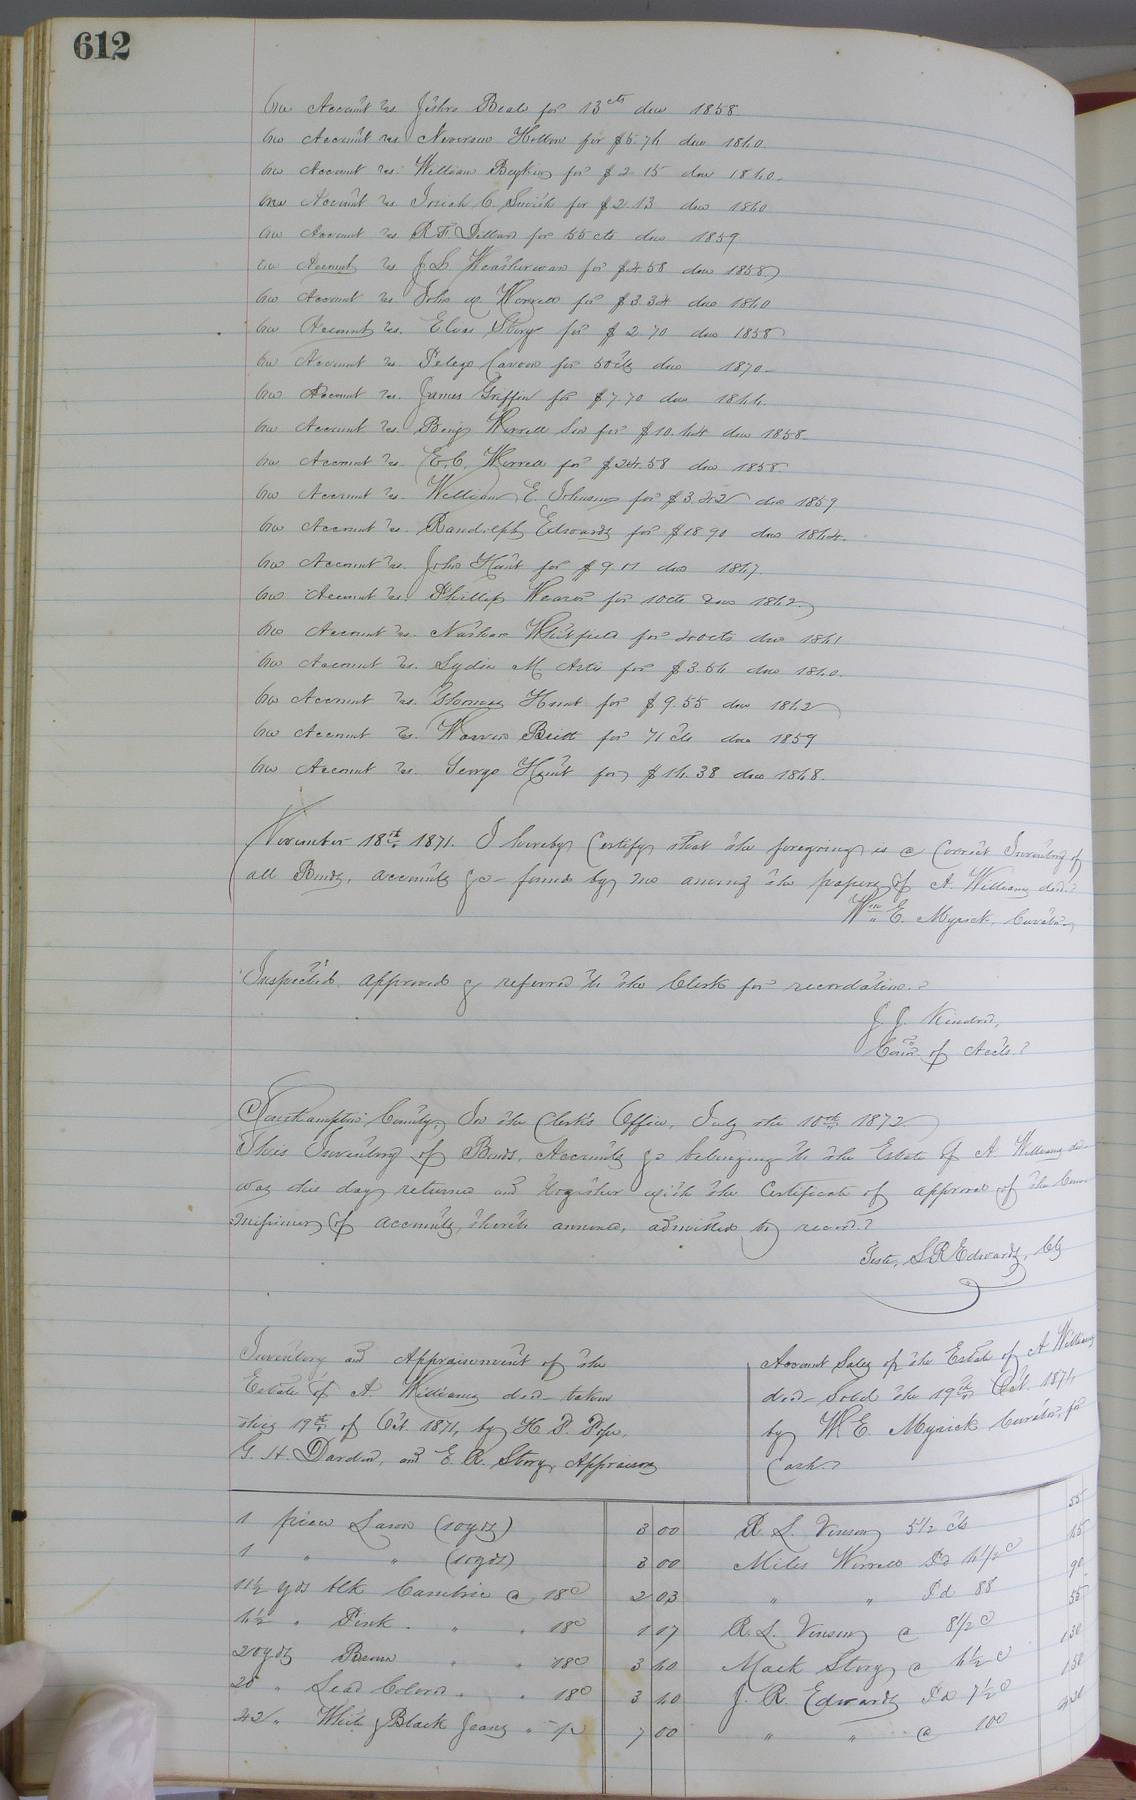 612
One Account vs. Jethro Beale for 13cts due 1858
One Account vs. Neverson for $5.76 due 1860
One Account vs. William Boykin for $2 15 due 1860
One Account vs. Josiah C. Smith for $2.13 due 1860
One Account vs. R F. Dillard for 55 cts due 1859
One Account vs. J. L. for $4.58 due 1858
One Account vs. John W Worrell for $3.34 due 1860
One Account vs. Elias Story for $2.70 due 1858
One Account vs. for 50cts due 1870
One Account vs. James Griffin for $7.70 due 1866
One Account vs. Benj Worrell Sen for $10.64 due 1858
One Account vs. E. C. Worrell for $24.58 due 1858
One Account vs. William E. Johnson for $3.42 due 1859
One Account vs. Randolph Edwards for $18.90 due 1864.
One Account vs. John Hunt for $9 due 1867
One Account vs. Phillip for 10cts due 1862
One Account vs. Nathan Whitfield for 40cts due 1861
One Account vs. Lydia M Artis for $3.56 due 1860.
One Account vs. Thomas Hunt for $9.55 due 1862
One Account vs. Warren Britt for 71 cts due 1859
One Account vs. George Hunt for $16.38 due 1868.
November 18th 1871. I hereby Certify that the foregoing is a Correct Inventory of
all Bonds, accounts &c found by me among the papers of A. Williams decd.
Wm E. Myrick, Curator
Inspected, approved & referred to the Clerk for recordation.
J. J. Kindred,
Comr of Accts.
Southampton County, In the Clerk's Office, July the 10th 1872
This Inventory of Bonds, Accounts &c belonging to the Estate of A Williams dec
was this day returned and together with the Certificate of approval of the Com
missioner of accounts, thereto annexed, admitted to record.
Teste, L. R Edwards, Clk
Inventory and Appraisement of the
Estate of A Williams decd taken
this 19th of Oct. 1871, by H. P. Pope,
G. H. Darden, and E. R. Story, Appraisers
Account Sales of the Estate of A Williams
decd Sold the 19th Oct. 1871,
by W E. Myrick Curator, for
Cash.
1 piece Lawn (10yds) 3 00 R. L. Vinson 5 1/2 cts 55
1 " " (10yds) 3 00 Miles Worrell Pd 4 1/2 c 45
11 1/2 yds blk Cambric @ 18c 2 03 " " Pd 88 90
6 1/2 " Pink " " 18c 1 17 R. L. Vinson @ 8 1/2 c 55
20yds Brown " " 18c 3 60 Mack Story @ 6 1/2 c 1 30
20 " Lead Colored " " 18c 3 60 J. R. Edwards Pd 7 1/2 c 1 50
42 " White & Black Jeans " 7 00 " " @ 10c 4 20